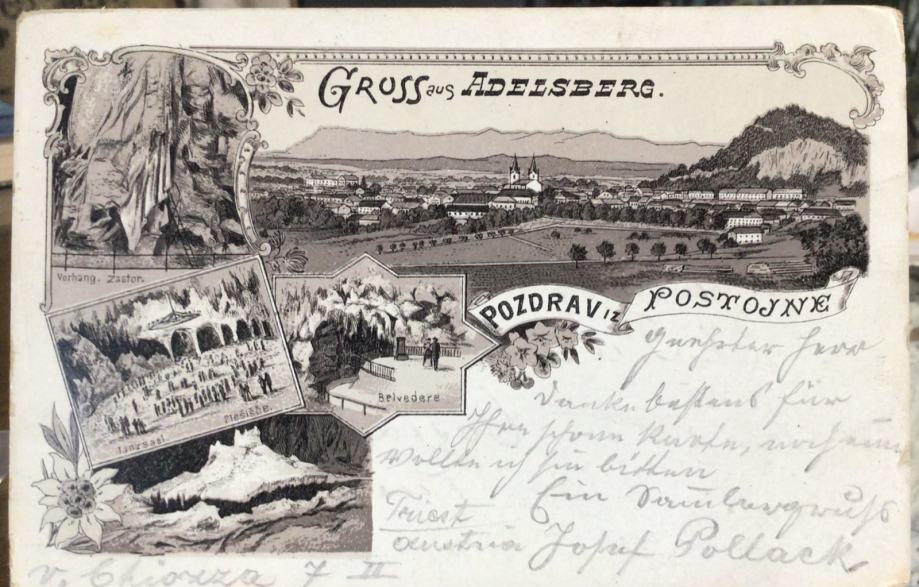 Gruss aus Adelsberg.
Vorhang. Zastor.
Pozdrav iz Postojne
Belvedere
Tanzsaal. Plesišče.
Geehrter Herr
Danke bestens für
Ihre schöne Karte, noch eine
wollte ich Sie bitten
Ein Sammlergruß
Triest
Austria Josef Pollack
v. Chiozza 7 II